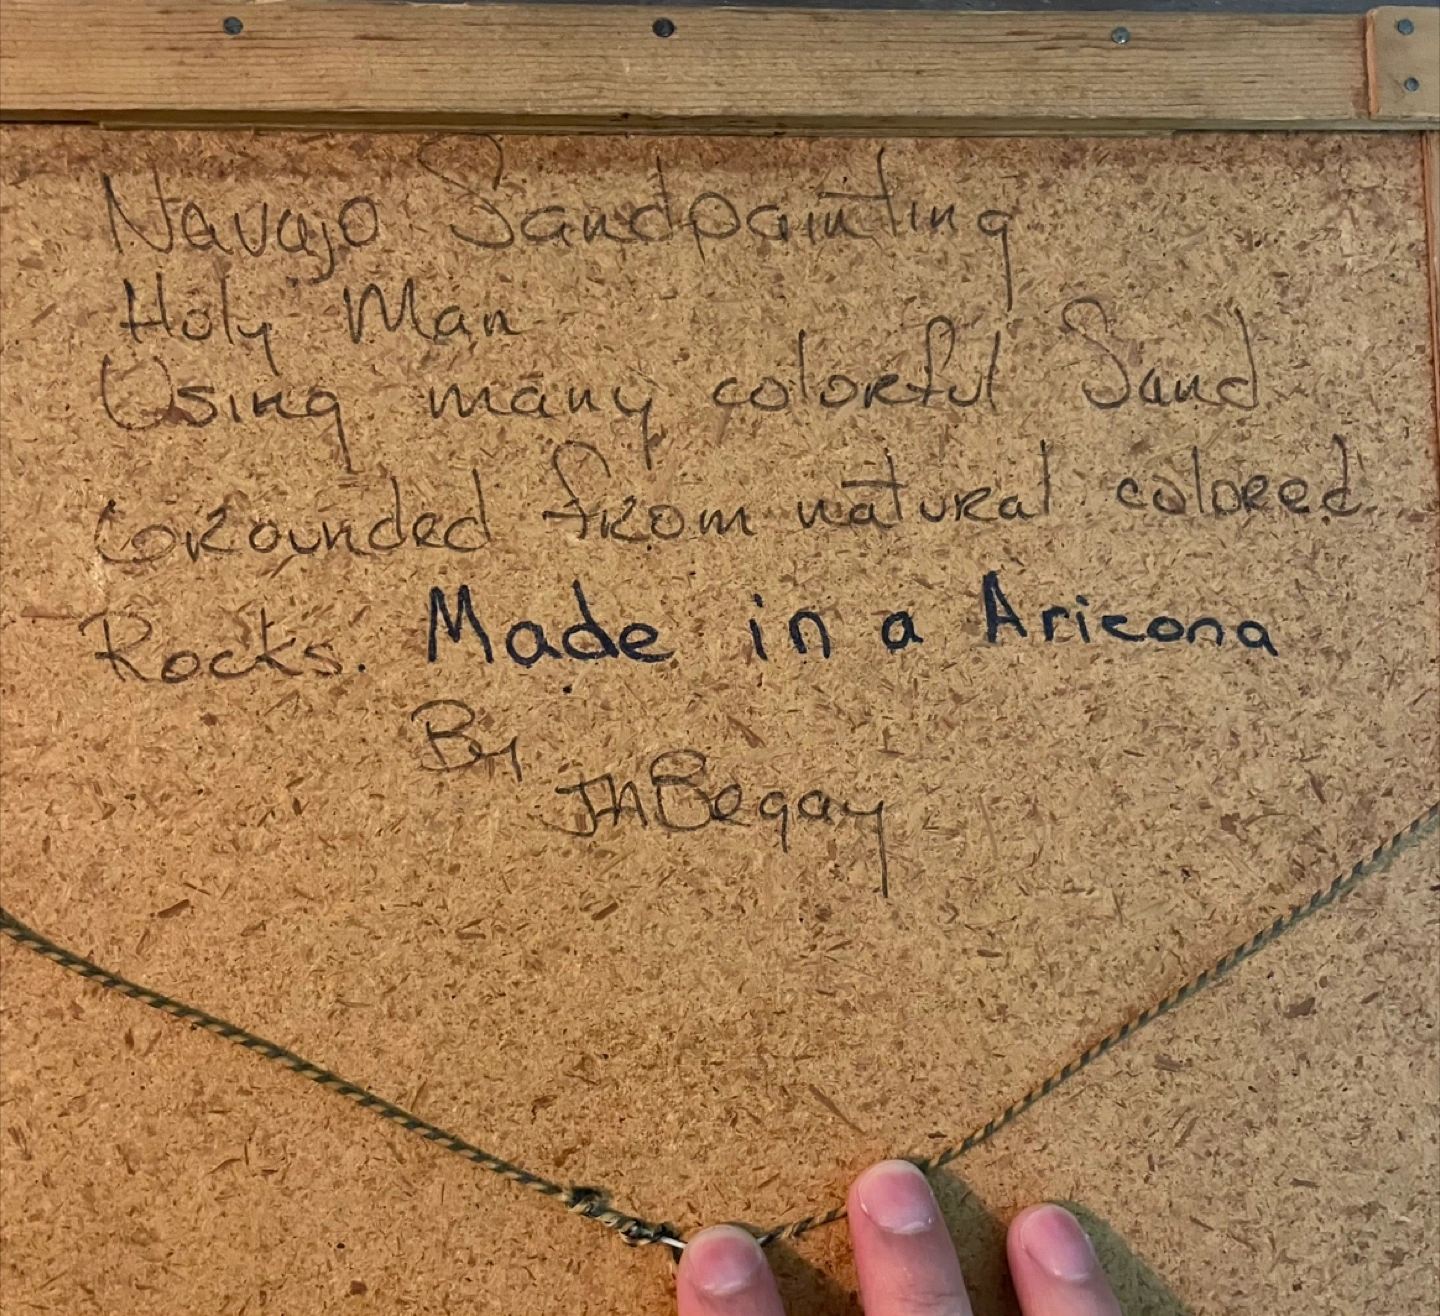 Navajo Sandpainting
Holy Man
Using many colorful Sand
Grounded from natural colored
Rocks. Made in a Arizona
By
JABegay